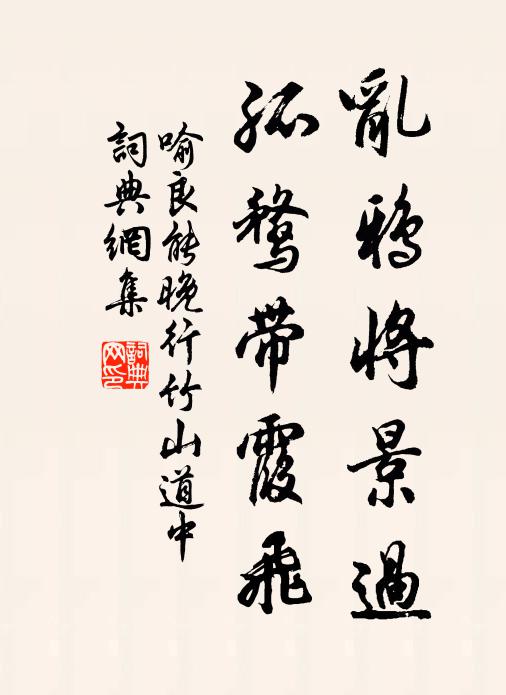 亂鴉將景過
孤鶩帶霞飛
喻良能晚行竹山道中
詞典網集
詞典網印